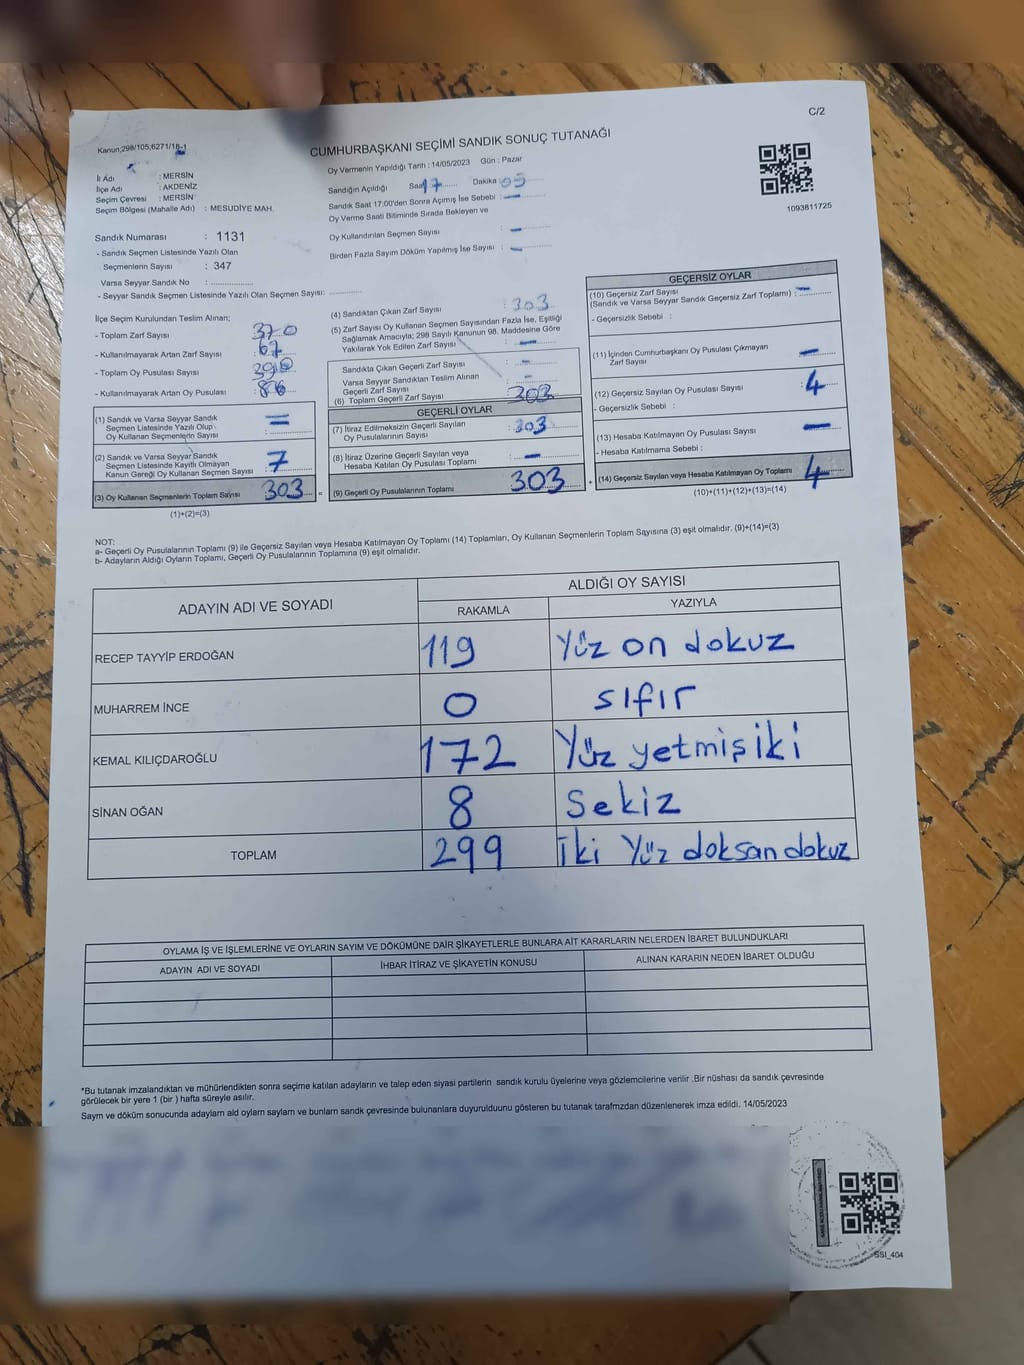 C/2
Kanun;298/105;6271/18-1
CUMHURBAŞKANI SEÇİMİ SANDIK SONUÇ TUTANAĞI
İl Adı : MERSİN
İlçe Adı : AKDENİZ
Seçim Çevresi : MERSİN
Seçim Bölgesi (Mahalle Adı) : MESUDİYE MAH.
Oy Vermenin Yapıldığı Tarih : 14/05/2023 Gün : Pazar
Sandığın Açıldığı Saat 17 Dakika : 05
Sandık Saat 17:00'den Sonra Açımış İse Sebebi : —
Oy Verme Saati Bitiminde Sırada Bekleyen ve
Oy Kullandırılan Seçmen Sayısı : —
Birden Fazla Sayım Döküm Yapılmış İse Sayısı : —
1093811725
Sandık Numarası : 1131
- Sandık Seçmen Listesinde Yazılı Olan
Seçmenlerin Sayısı : 347
Varsa Seyyar Sandık No :
- Seyyar Sandık Seçmen Listesinde Yazılı Olan Seçmen Sayısı:
İlçe Seçim Kurulundan Teslim Alınan;
- Toplam Zarf Sayısı : 370
- Kullanılmayarak Artan Zarf Sayısı : 67
- Toplam Oy Pusulası Sayısı
- Kullanılmayarak Artan Oy Pusulası
(1) Sandık ve Varsa Seyyar Sandık
Seçmen Listesinde Yazılı Olup
Oy Kullanan Seçmenlerin Sayısı
(2) Sandık ve Varsa Seyyar Sandık
Seçmen Listesinde Kayıtlı Olmayan
Kanun Gereği Oy Kullanan Seçmen Sayısı : 7
(3) Oy Kullanan Seçmenlerin Toplam Sayısı 303
(1)+(2)=(3)
(4) Sandıktan Çıkan Zarf Sayısı : 303
(5) Zarf Sayısı Oy Kullanan Seçmen Sayısından Fazla İse, Eşitliği
Sağlamak Amacıyla; 298 Sayılı Kanunun 98. Maddesine Göre
Yakılarak Yok Edilen Zarf Sayısı : —
Sandıkta Çıkan Geçerli Zarf Sayısı : -
Varsa Seyyar Sandıktan Teslim Alınan
Geçerli Zarf Sayısı : -
(6) Toplam Geçerli Zarf Sayısı : 303
GEÇERLİ OYLAR
(7) İtiraz Edilmeksizin Geçerli Sayılan
Oy Pusulalarının Sayısı : 303
(8) İtiraz Üzerine Geçerli Sayılan veya
Hesaba Katılan Oy Pusulası Toplamı : —
(9) Geçerli Oy Pusulalarının Toplamı : 303
GEÇERSİZ OYLAR
(10) Geçersiz Zarf Sayısı
(Sandık ve Varsa Seyyar Sandık Geçersiz Zarf Toplamı) : —
- Geçersizlik Sebebi :
(11) İçinden Cumhurbaşkanı Oy Pusulası Çıkmayan
Zarf Sayısı : —
(12) Geçersiz Sayılan Oy Pusulası Sayısı : 4
- Geçersizlik Sebebi :
(13) Hesaba Katılmayan Oy Pusulası Sayısı : —
- Hesaba Katılmama Sebebi :
(14) Geçersiz Sayılan veya Hesaba Katılmayan Oy Toplamı : 4
(10)+(11)+(12)+(13)=(14)
NOT:
a- Geçerli Oy Pusulalarının Toplamı (9) ile Geçersiz Sayılan veya Hesaba Katılmayan Oy Toplamı (14) Toplamları, Oy Kullanan Seçmenlerin Toplam Sayısına (3) eşit olmalıdır. (9)+(14)=(3)
b- Adayların Aldığı Oyların Toplamı, Geçerli Oy Pusulalarının Toplamına (9) eşit olmalıdır.
ADAYIN ADI VE SOYADI ALDIĞI OY SAYISI
RAKAMLA YAZIYLA
RECEP TAYYİP ERDOĞAN 119 Yüz on dokuz
MUHARREM İNCE 0 sıfır
KEMAL KILIÇDAROĞLU 172 Yüz yetmiş iki
SİNAN OĞAN 8 Sekiz
TOPLAM 299 İki Yüz doksan dokuz
OYLAMA İŞ VE İŞLEMLERİNE VE OYLARIN SAYIM VE DÖKÜMÜNE DAİR ŞİKAYETLERLE BUNLARA AİT KARARLARIN NELERDEN İBARET BULUNDUKLARI
ADAYIN ADI VE SOYADI İHBAR İTİRAZ VE ŞİKAYETİN KONUSU ALINAN KARARIN NEDEN İBARET OLDUĞU
*Bu tutanak imzalandıktan ve mühürlendikten sonra seçime katılan adayların ve talep eden siyasi partilerin sandık kurulu üyelerine veya gözlemcilerine verilir .Bir nüshası da sandık çevresinde
görülecek bir yere 1 (bir ) hafta süreyle asılır.
Sayım ve döküm sonucunda adayların ald oyların sayların ve bunların sandk çevresinde bulunanlara duyurulduunu gösteren bu tutanak tarafmzdan düzenlenerek imza edildi. 14/05/2023
SSI_404